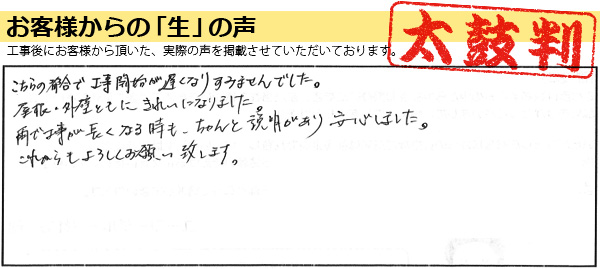 お客様からの「生」の声
工事後にお客様から頂いた、実際の声を掲載させていただいております。
太鼓判
こちらの都合で工事開始が遅くなりすみませんでした。
屋根・外壁ともにきれいになりました。
雨で工事が長くなる時も、ちゃんと説明があり安心しました。
これからもよろしくお願い致します。